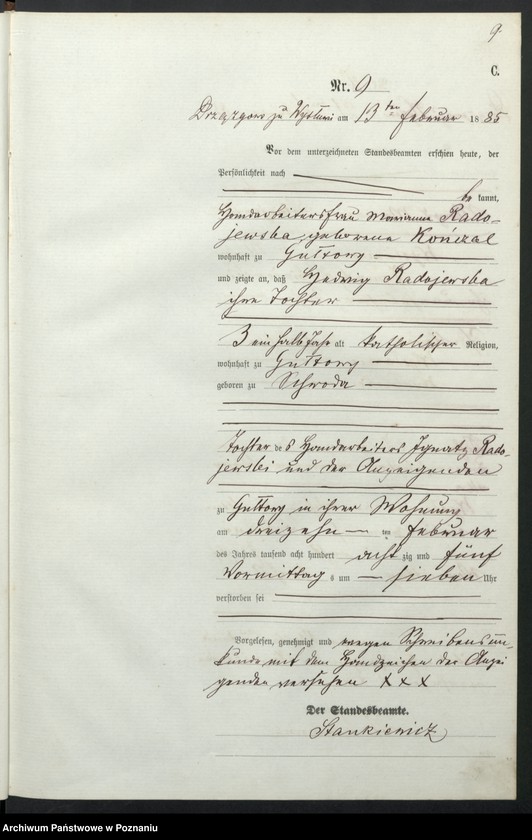 9.
C.
Nr. 9
zu am 13ten Februar 1885
Vor dem unterzeichneten Standesbeamten erschien heute, der
Persönlichkeit nach
be kannt,
Handarbeitersfrau Marianna Rado-
jewska geborene Kończal
wohnhaft zu Gułtowy
und zeigte an, daß Hedwig Radojewska
ihre Tochter
3 ein halb Jahr alt katholischer Religion,
wohnhaft zu Gułtowy
geboren zu Schroda
Tochter des Handarbeiters Ignatz Rado-
jewski und der Anzeigenden
zu Gułtowy in ihrer Wohnung
am dreizehn ten Februar
des Jahres tausend acht hundert achtzig und fünf
Vormittags um sieben Uhr
verstorben sei
Vorgelesen, genehmigt und wegen Schreibensun-
kunde mit dem Handzeichen der Anzei
genden versehen X X X
Der Standesbeamte.
Stankiewicz
Archiwum Państwowe w Poznaniu